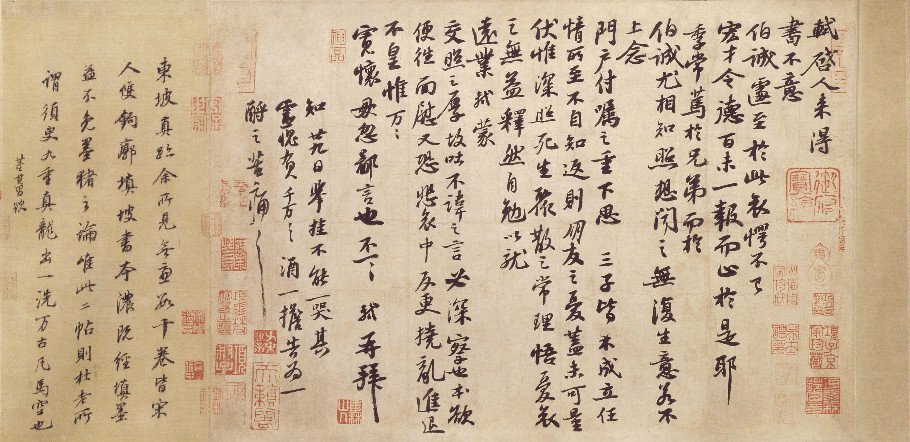 軾啓人來得
書不意
伯誠遽至於此哀愕不已
宏才令德百未一報而止於是耶
季常篤於兄弟而於
伯誠尤相知照想聞之無復生意若不
上念
門户付囑之重下思三子皆不成立任
情所至不自知返則朋友之憂蓋未可量
伏惟深照死生聚散之常理悟憂哀
之無益釋然自勉以就
遠業軾蒙
交照之厚故吐不諱之言必深察也本欲
便往面慰又恐悲哀中反更撓亂進退
不皇惟万万
寬懷毋忽鄙言也不一一軾再拜
知廿九日舉挂不能一哭其
靈愧負千万千万酒一擔告為一
酹之苦痛苦痛
東坡真跡余所見無慮數十卷皆宋
人雙鉤廓填坡書本濃既經填墨
益不免墨豬之論唯此二帖則杜老所
謂須臾九重真龍出一洗万古凡馬空也
董其昌跋